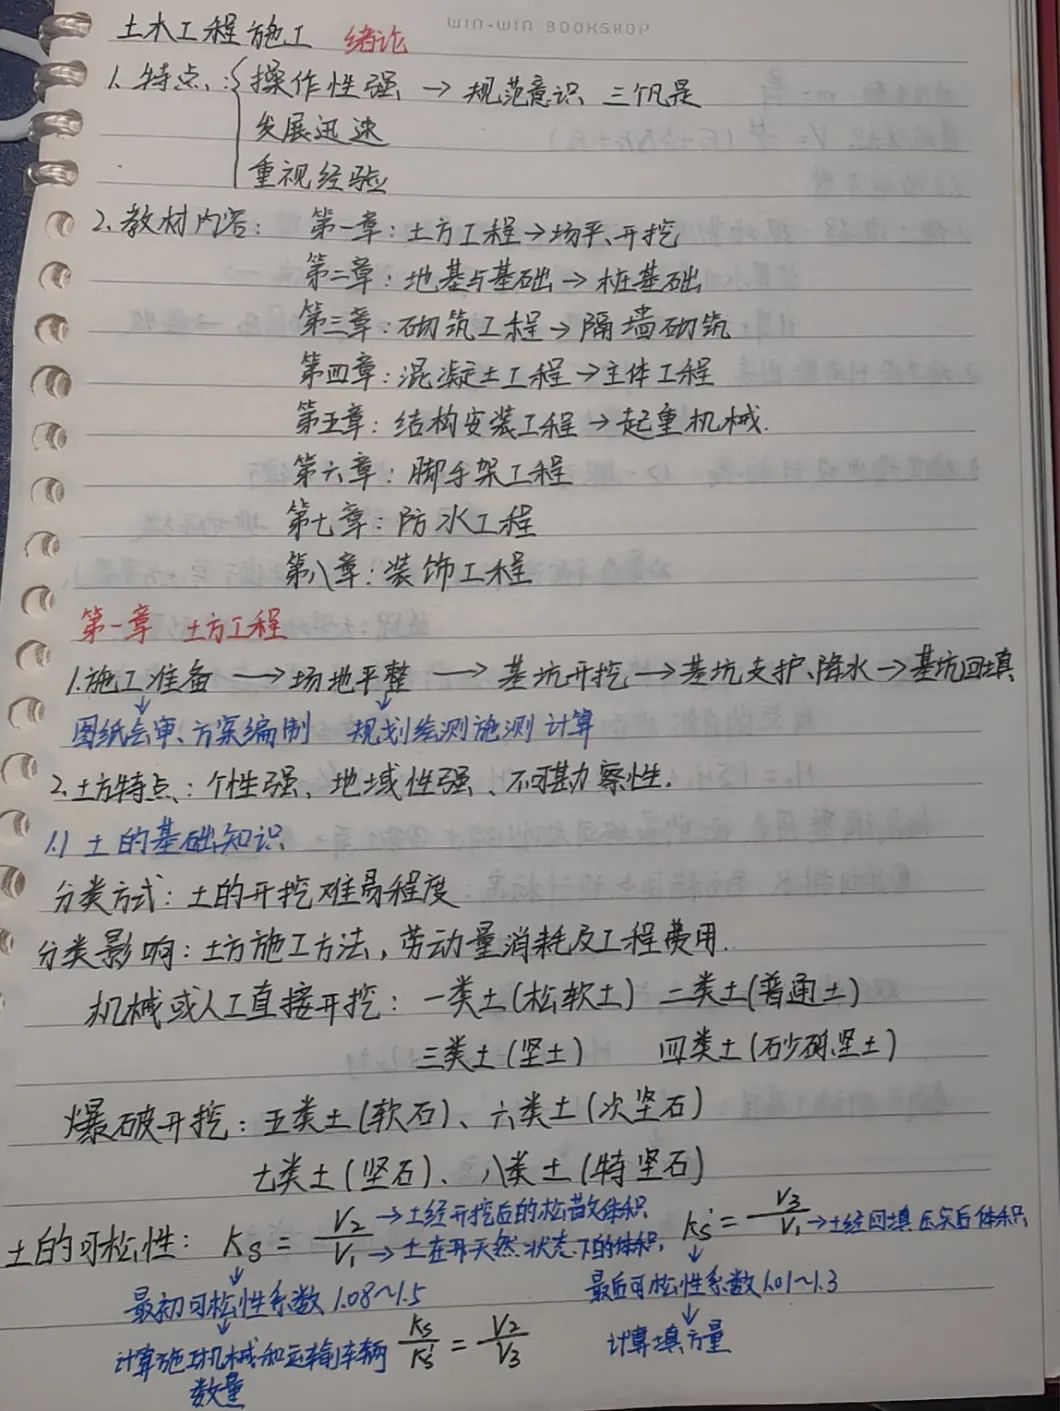 WIN-WIN BOOKSHOP
土木工程施工 绪论
1. 特点:{操作性强 → 规范意识 三个凡是
发展迅速
重视经验
2. 教材内容: 第一章:土方工程→场平、开挖
第二章:地基与基础→桩基础
第三章:砌筑工程→隔墙砌筑
第四章:混凝土工程→主体工程
第五章:结构安装工程→起重机械.
第六章:脚手架工程
第七章:防水工程
第八章:装饰工程
第一章 土方工程
1.施工准备 → 场地平整 → 基坑开挖→基坑支护、降水→基坑回填
图纸会审、方案编制 规划绘测施测计算
2.土方特点:个性强、地域性强、不可勘察性.
1.1 土的基础知识
分类方式:土的开挖难易程度
分类影响:土方施工方法,劳动量消耗及工程费用.
机械或人工直接开挖:一类土(松软土) 二类土(普通土)
三类土(坚土) 四类土(砂砾坚土)
爆破开挖:五类土(软石)、六类土(次坚石)
七类土(坚石)、八类土(特坚石)
土的可松性: Ks = V2/V1 →土经开挖后的松散体积 →土在天然状态下的体积, Ks' = V3/V1 →土经回填压实后体积
最初可松性系数 1.08~1.5 最后可松性系数 1.01~1.3
计算施工机械和运输车辆 Ks/Ks' = V2/V3 计算填方量
数量